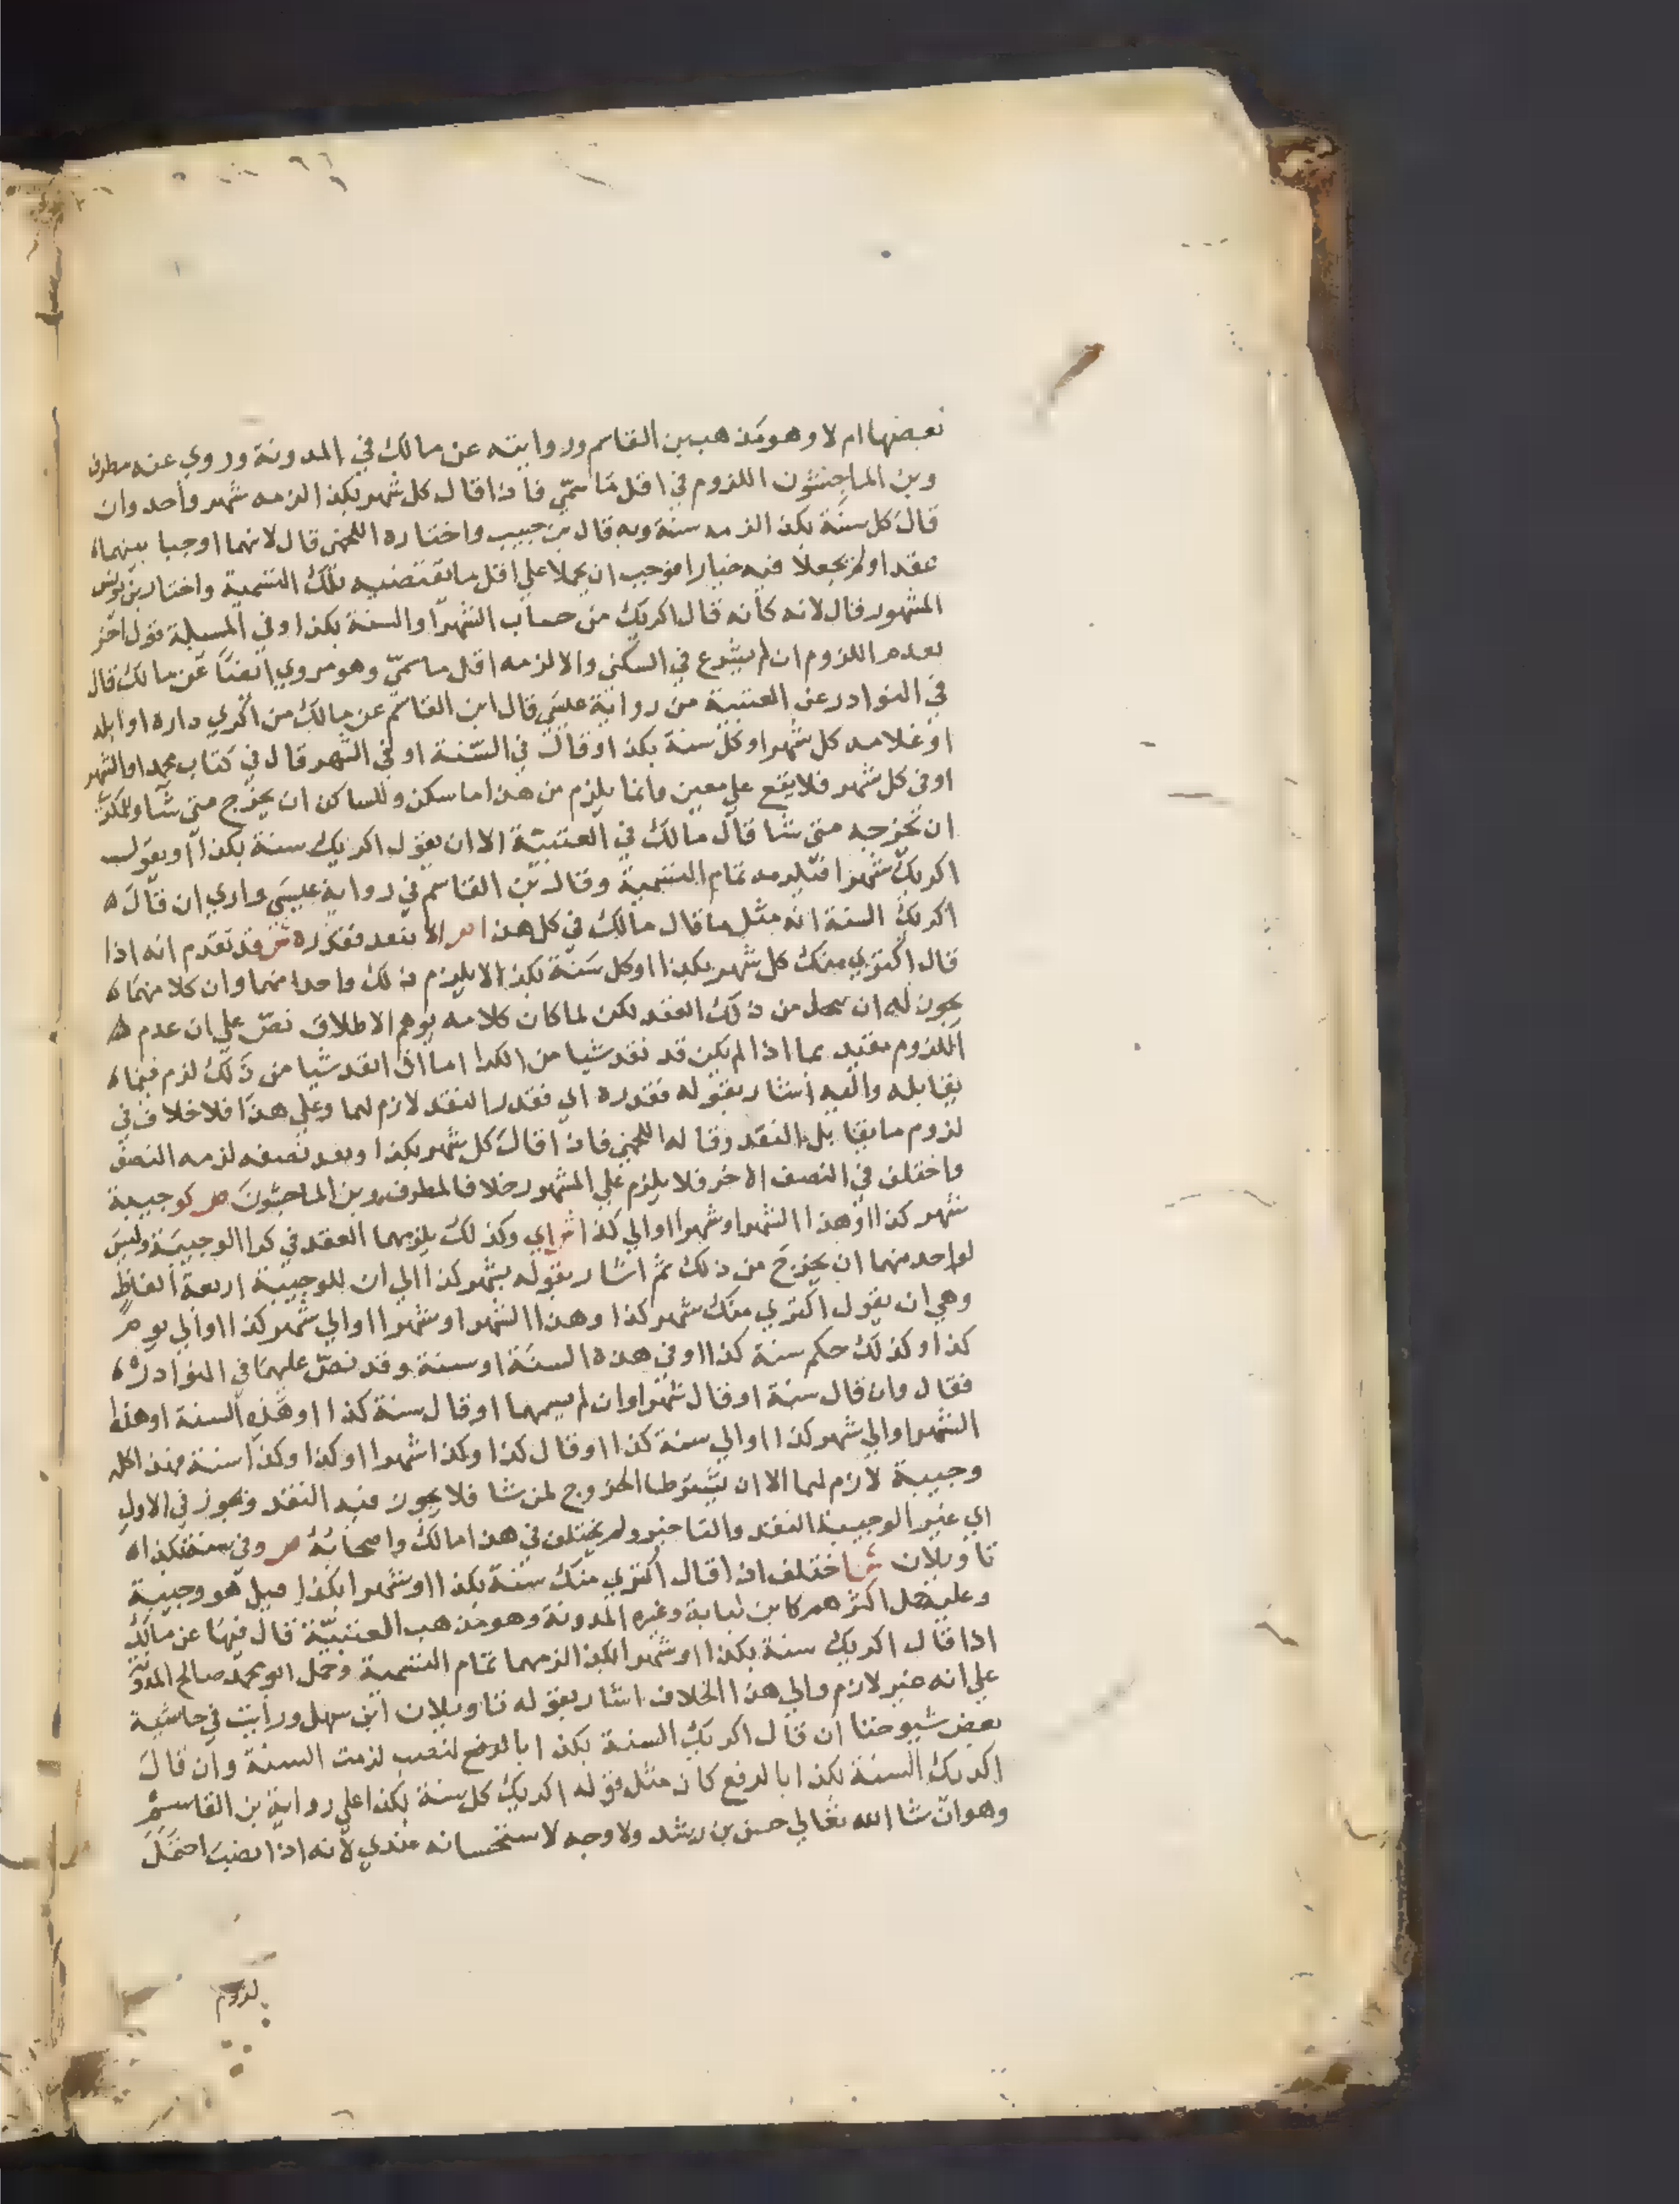 بعضها ام لا وهو مذهب بن القاسم وروايته عن مالك في المدونة وروي عنه مطرف
وبن الماجشون اللزوم في اقل ما سمي فاذا قال كل شهر بكذا لزمه شهر واحد وان
قال كل سنة بكذا لزمه سنة وبه قال بن حبيب واختاره اللخمي قال لانهما اوجبا بينهما
عقدا ولم يجعلا فيه خيارا فوجب ان يحملا علي اقل ما تقتضيه تلك التسمية واختار بن يونس
المشهور قال لانه كأنه قال اكريك من حساب الشهر او السنة بكذا وفي المسيلة قول اخر
بعدم اللزوم ان لم يشرع في السكني والا لزمه اقل ما سمي وهو مروي ايضا عن مالك قال
في النوادر عن العتبية من رواية عيسي قال ابن القاسم عن مالك من اكري داره او ابله
او غلامه كل شهر او كل سنة بكذا او قال في السنة او في الشهر قال في كتاب محمد او الشهر
او في كل شهر فلا يقع علي معين وانما يلزم من هذا ما سكن وللساكن ان يخرج متي شا وللمكري
ان يخرجه متي شا قال مالك في العتبية الا ان يقول اكريك سنة بكذا او يقول
اكريك شهرا فتلزمه تمام التسمية وقال بن القاسم في رواية عيسي واري ان قال
اكريك السنة انه مثل ما قال مالك في كل هذا ص الا بنقد فقدره ش قد تقدم انه اذا
قال اكتري منك كل شهر بكذا او كل سنة بكذا لا يلزم ذلك واحدا منهما وان كلا منهما
يجوز له ان يحل من ذلك العقد لكن لما كان كلامه يوهم الاطلاق نص علي ان عدم
اللزوم مقيد بما اذا لم يكن قد نقد شيا من الكرا اما اذا نقد شيا من ذلك لزم فيما
يقابله واليه اشار بقوله فقدره اي فقدر النقد لازم لهما وعلي هذا فلا خلاف في
لزوم ما يقابل النقد وقاله اللخمي فاذا قال كل شهر بكذا ونقد نصفه لزمه النصف
واختلف في النصف الاخر فلا يلزم علي المشهور خلافا لمطرف وبن الماجشون ص كوجيبة
شهر كذا او هذا الشهر او شهرا او الي كذا ش اي وكذلك يلزمهما العقد في كرا الوجيبة وليس
لواحد منهما ان يخرج من ذلك ثم اشار بقوله بشهر كذا الي ان للوجيبة اربعة الفاظ
وهي ان يقول اكتري منك شهر كذا وهذا الشهر او شهرا او الي شهر كذا او الي يوم
كذا وكذلك حكم سنة كذا او في هذه السنة او سنة وقد نص عليهما في النوادر
فقال وان قال سنة او قال شهرا وان لم يسمهما او قال سنة كذا او هذه السنة او هذا
الشهر او الي شهر كذا او الي سنة كذا او قال كذا وكذا شهرا او كذا وكذا سنة فهذا كله
وجيبة لازم لهما الا ان يشترطا الخروج لمن شا فلا يجوز فيه النقد ويجوز في الاول
اي غير الوجيبة النقد والتاخير ولم يختلف في هذا مالك واصحابه ص وفي سنة بكذا
تاويلان ش اختلف اذا قال اكتري منك سنة بكذا او شهرا بكذا قيل هو وجيبة
وعليه حمل اكثرهم كابن لبابة وغيره المدونة وهو مذهب العتبية قال فيها عن مالك
اذا قال اكريك سنة بكذا او شهرا بكذا لزمهما تمام التسمية وحمل ابو محمد صالح المدونة
علي انه غير لازم والي هذا الخلاف اشار بقوله تاويلان ابن سهل ورأيت في حاشية
بعض شيوخنا ان قال اكريك السنة بكذا بالرفع لنصب لزمت السنة وان قال
اكريك السنة بكذا بالرفع كان مثل قوله اكريك كل سنة بكذا علي رواية بن القاسم
وهو ان شا الله تعالي حسن بن رشد ولا وجه لاستحسانه عندي لانه اذا نصب احتمل
لزوم